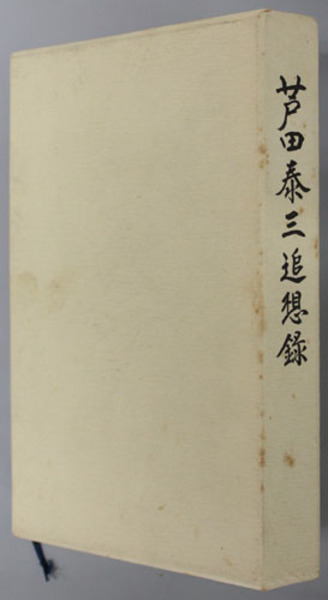 芦田泰三追想録